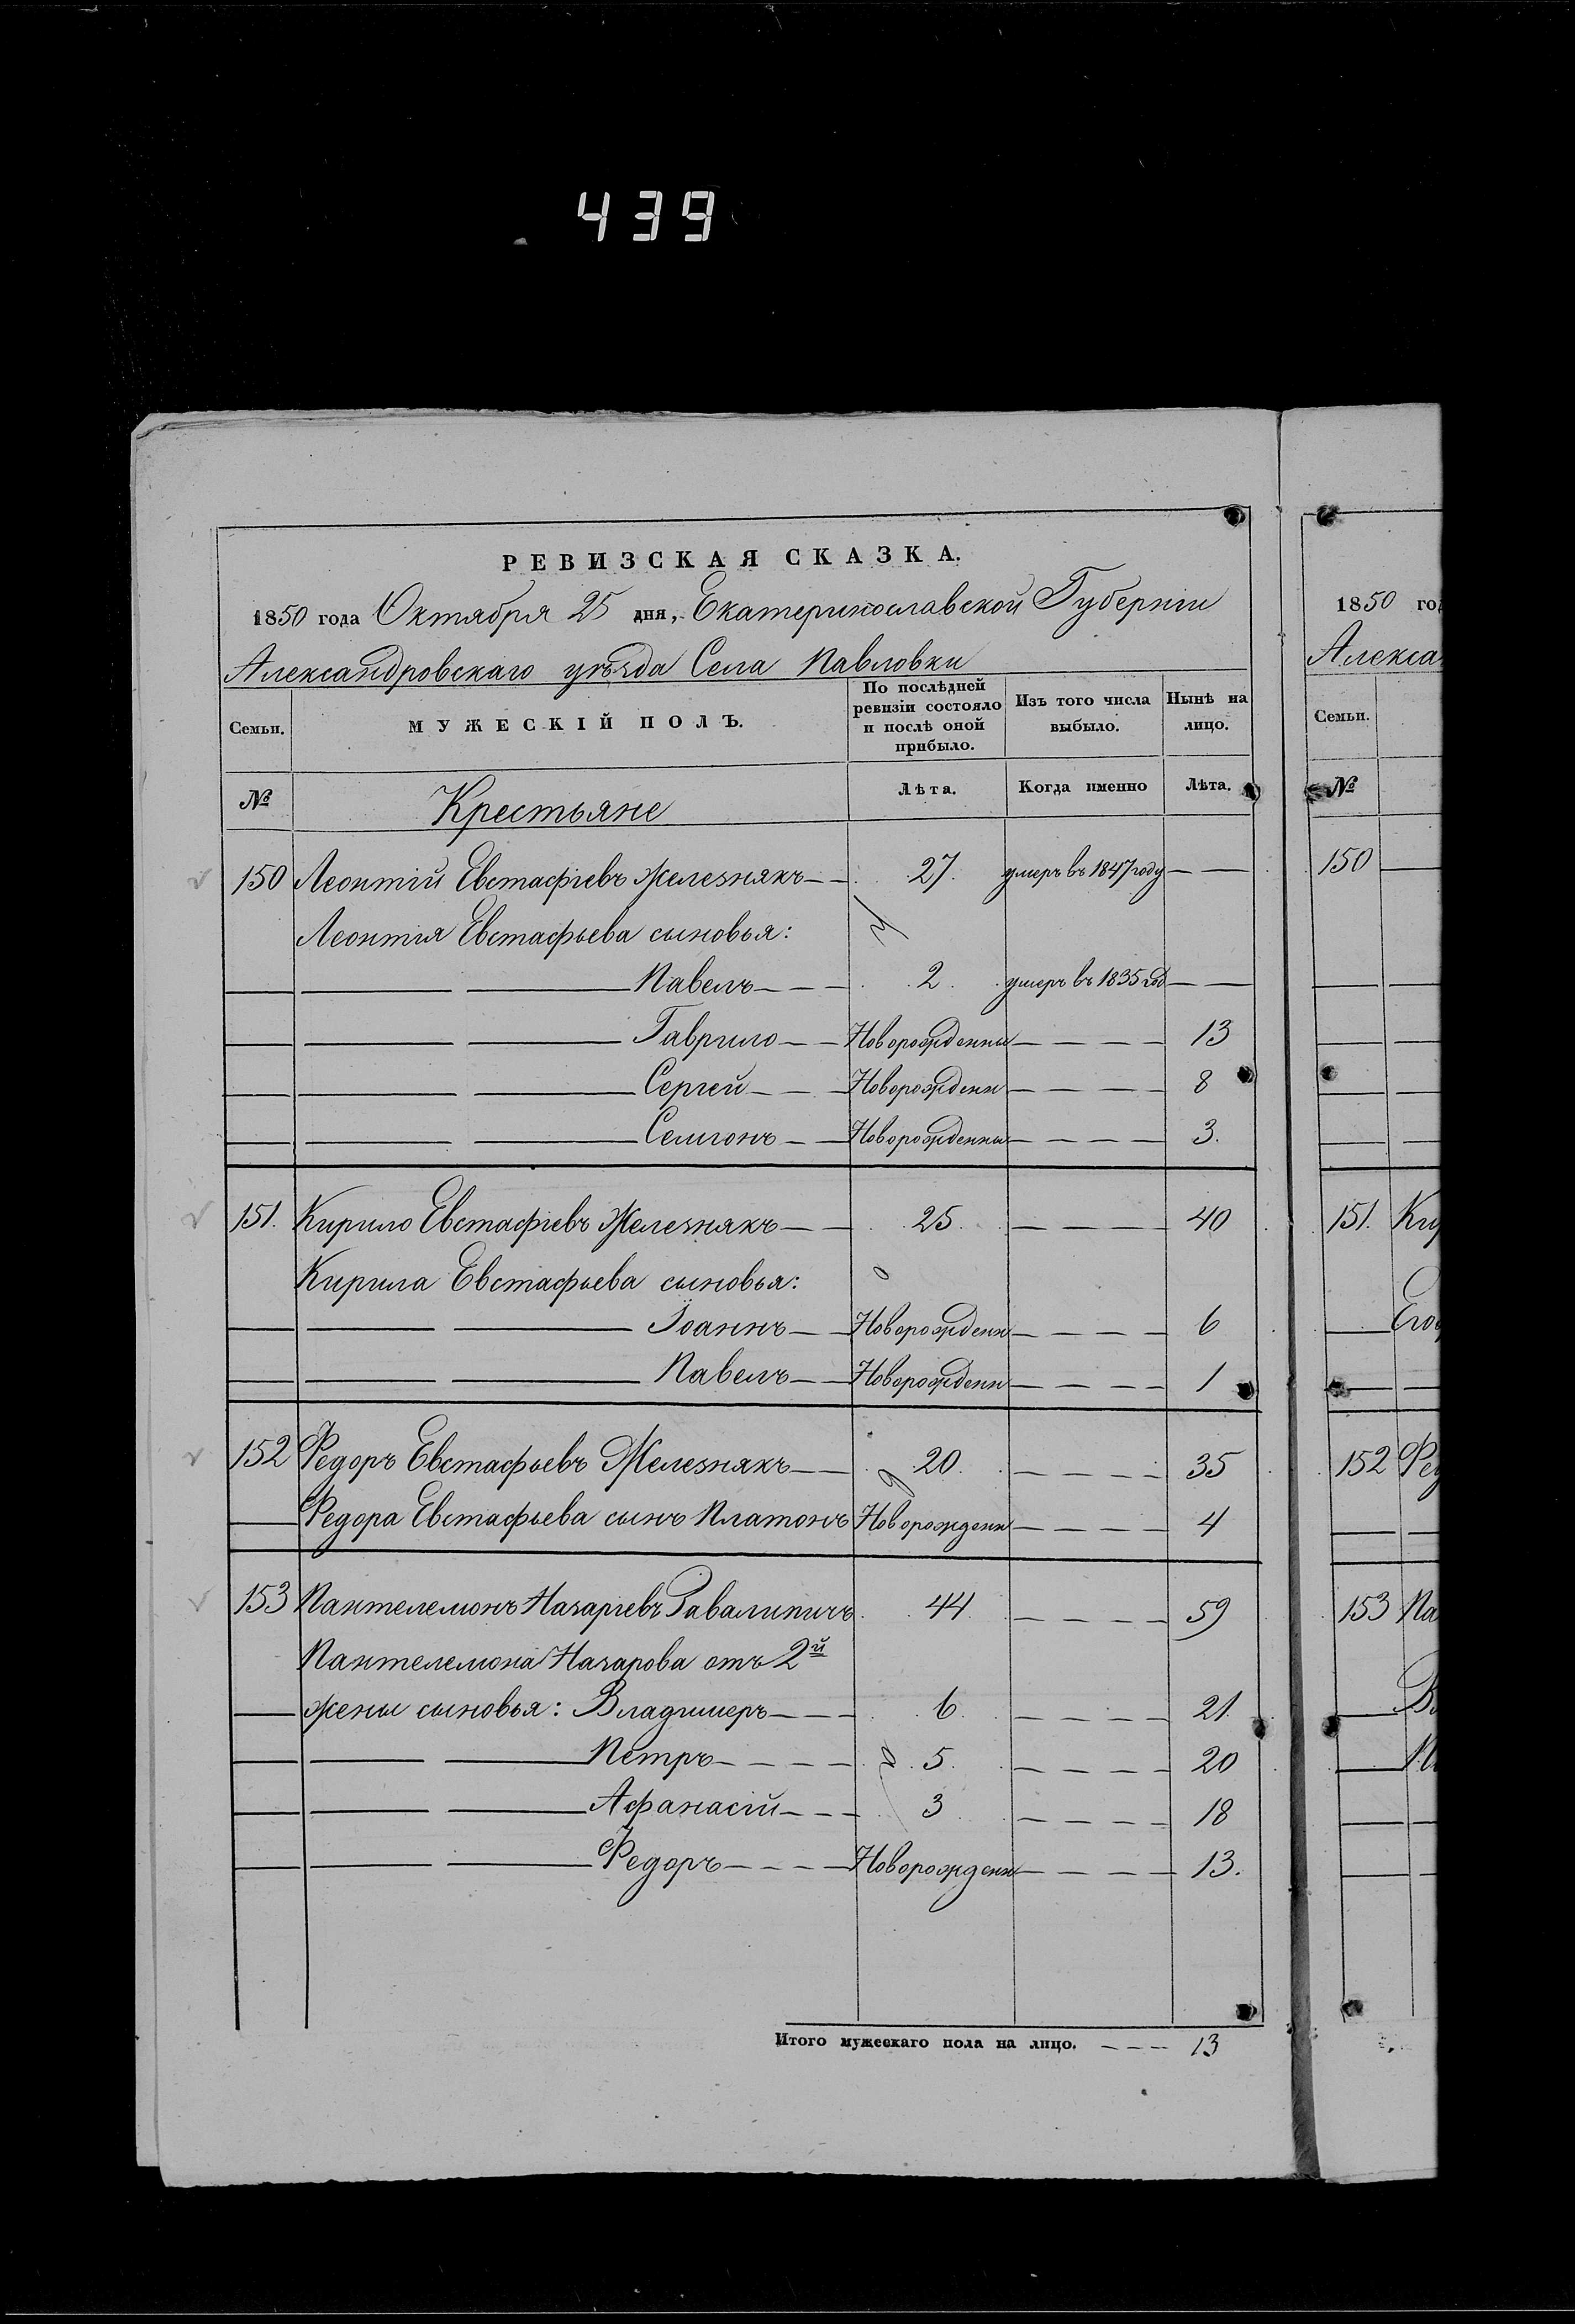 439
РЕВИЗСКАЯ СКАЗКА.
1850 года Октября 25 дня, Екатеринославской Губерніи
Александровскаго уѣзда Села Павловки
Семьи. МУЖЕСКІЙ ПОЛЪ. По послѣдней ревизіи состояло и послѣ оной прибыло. Изъ того числа выбыло. Нынѣ на лицо.
№ Крестьяне Лѣта. Когда именно Лѣта.
150 Леонтій Евстафіевъ Железнякъ 27. умеръ въ 1847 году
Леонтія Евстафьева сыновья:
Павелъ 2. умеръ въ 1835 год
Гаврило Новорожденны 13
Сергей Новорожденн 8
Семіонъ Новорожденны 3.
151. Кирило Евстафіевъ Железнякъ 25. 40
Кирила Евстафьева сыновья:
Іоаннъ Новорожденн 6
Павелъ Новорожденн 1
152 Федоръ Евстафьевъ Железнякъ 20. 35
Федора Евстафьева сынъ Платонъ Новорожденн 4
153 Пантелемонъ Назаріевъ 44. 59
Пантелемона Назарова отъ 2й
жены сыновья: Владимеръ 6. 21.
Петръ 5. 20
Афанасій 3 18
Федоръ Новорожденн 13.
Итого мужескаго пола на лицо. 13
1850 го
Алекса
Семьи.
№
150
151. Ки
Его
152 Фед
153 Па